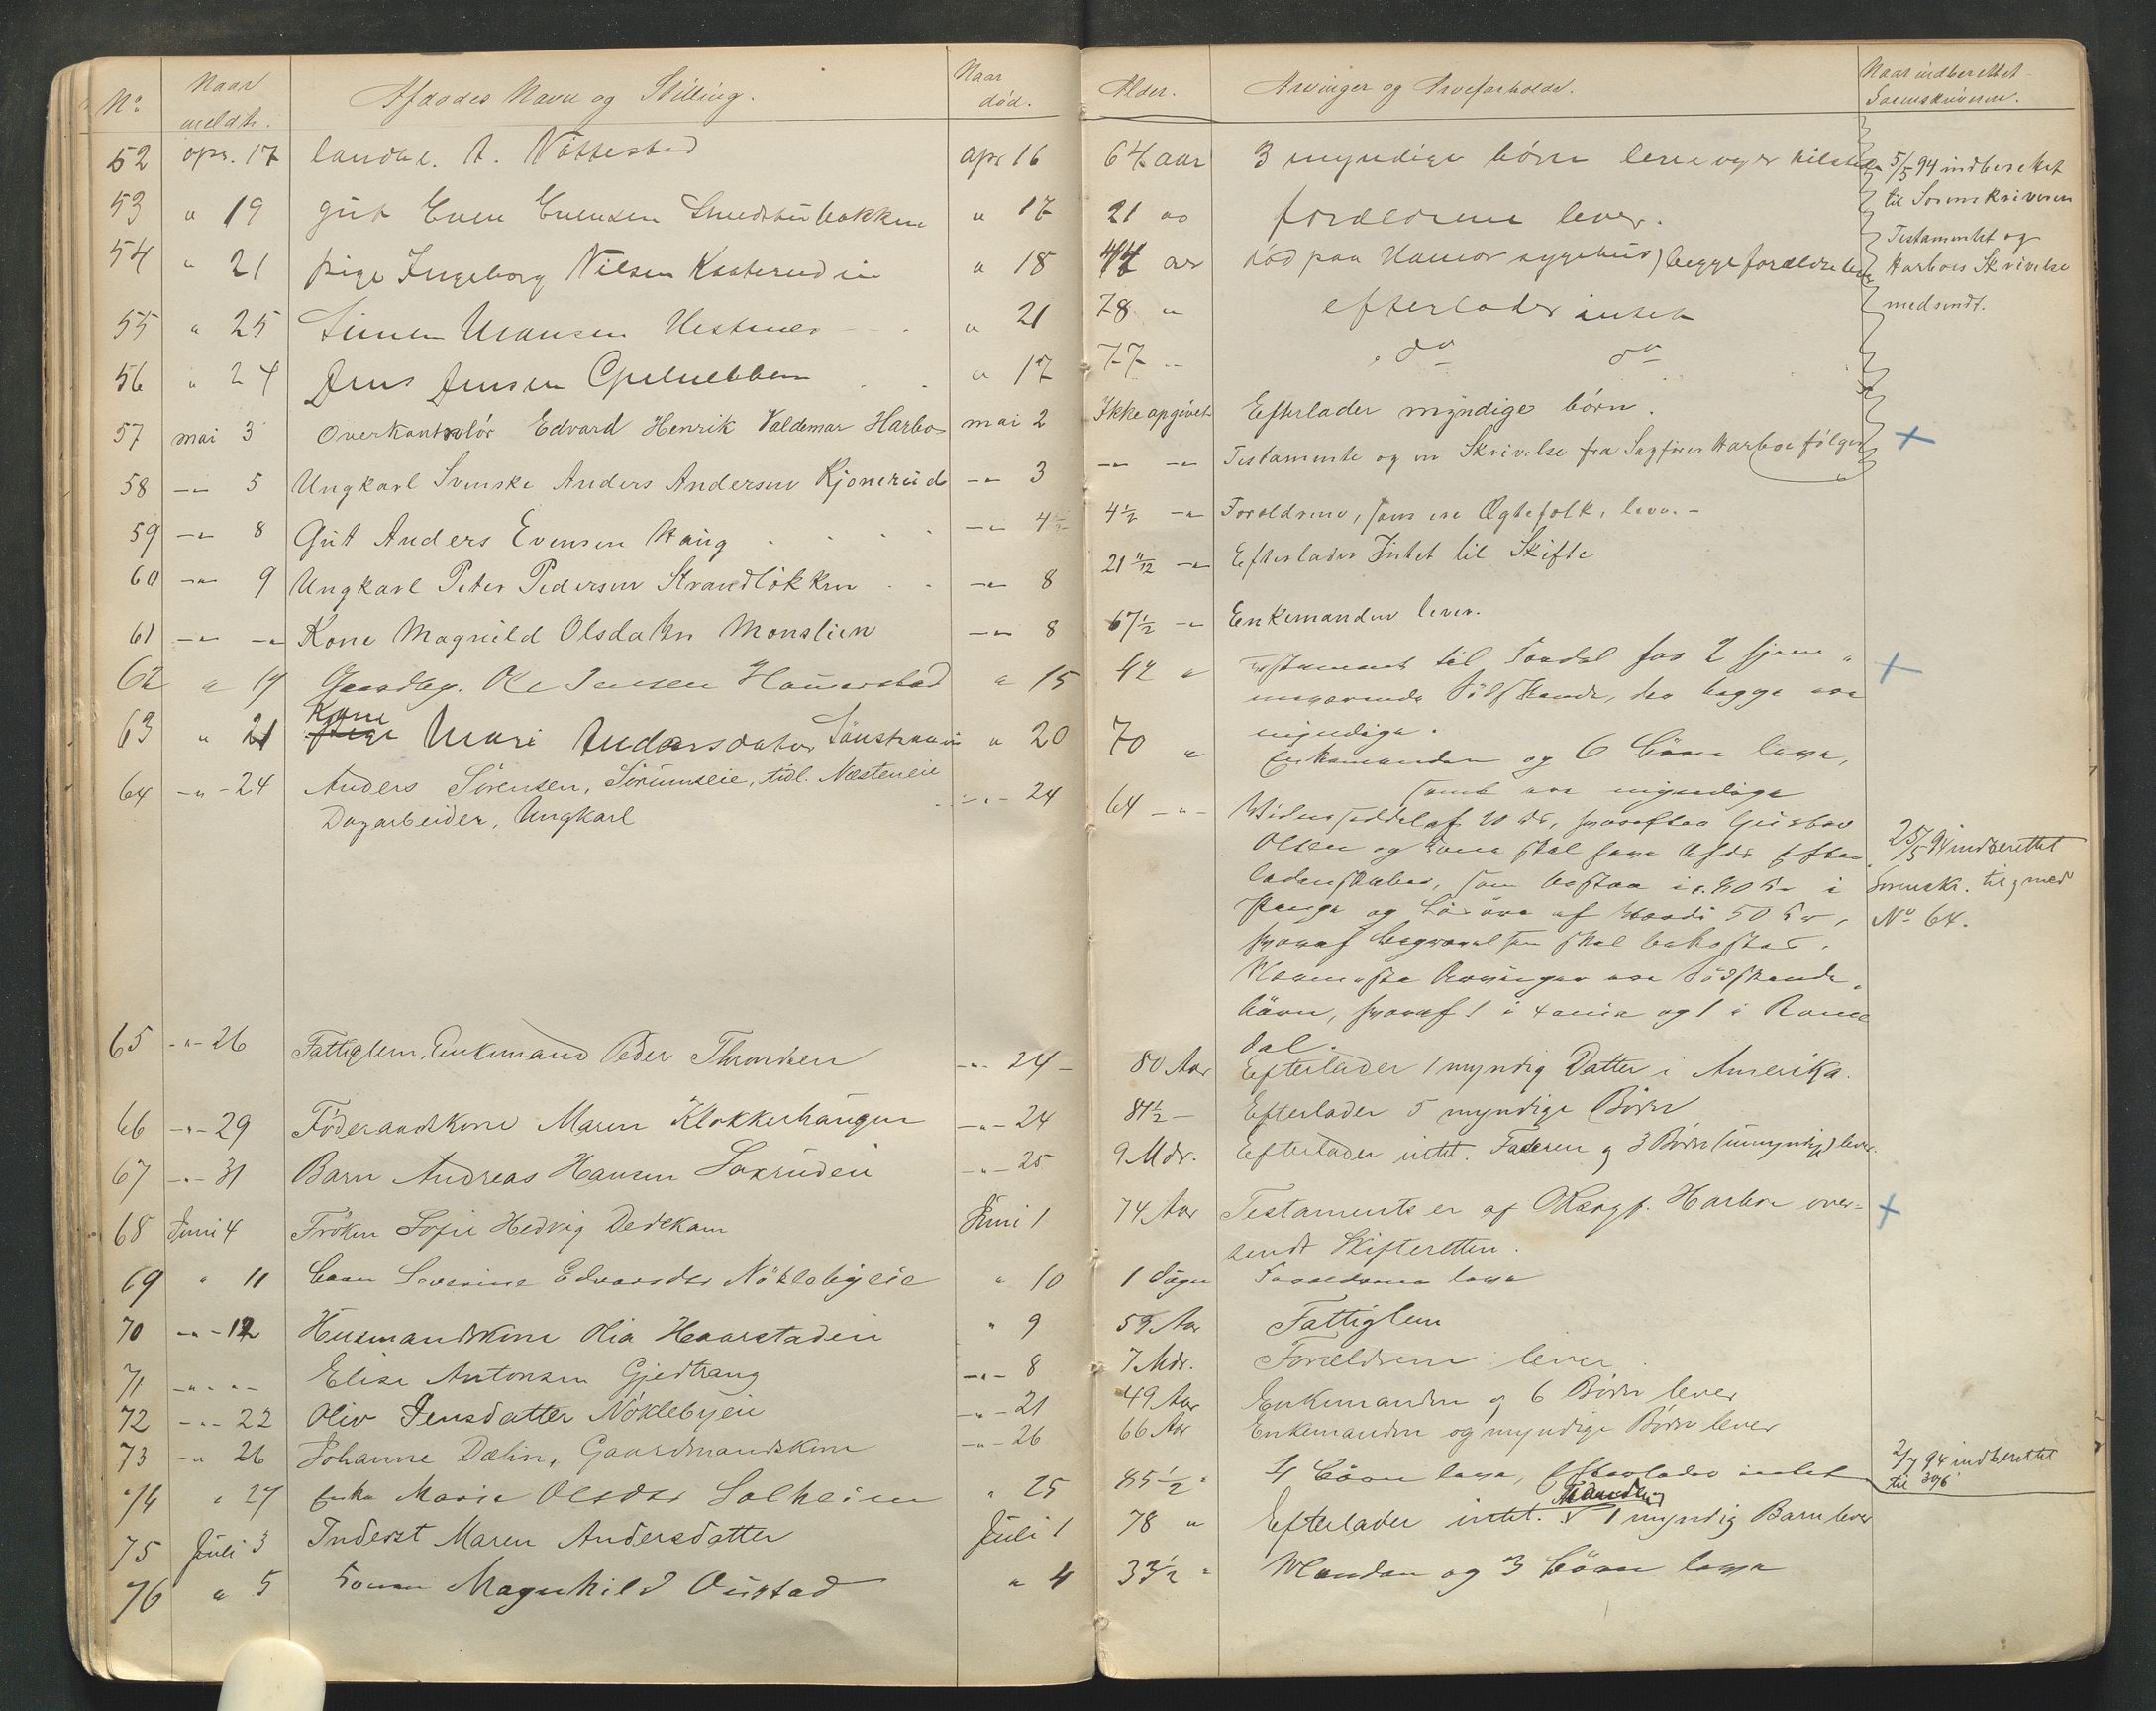 No Naar meldt. Afdødes Navn og Stilling. Naar død. Alder. Arvinger og Arveforholde. Naar indberettet Sorenskriveren.
52 apr. 17 A. Nøttestad apr 16 64 aar 3 myndige børn
53 " 19 gut Even Evensen " 17 21 forældrene lever.
54 " 21 pige Ingeborg Nilsen " 18 44 død paa Hamar sygehus) begge forældre
55 " 25 Simen " 21 78 " efterlader intet
56 " 24 Jens Jensen " 17 77 " do do
5/5 94 indberettet
til Sorenskriveren
Testamentet og
Harboes Skrivelse
medsendt.
57 mai 3 Overkontrolør Edvard Henrik Valdemar Harboe mai 2 Ikke opgivet Efterlader myndige børn.
Testamente og en Skrivelse fra Sagfører Harboe følger
58 -"- 5 Ungkarl Svenske Anders Andersen Kjonerud -"- 3 -"- -"-
59 -"- 8 Gut Anders Evensen Haug -"- 4 4½ -"- Forældrene, som ere Ægtefolk, lever.
60 -"- 9 Ungkarl Peter Pedersen Strandløkken -"- 8 21 11/12 -"- Efterlader Intet til Skifte
61 -"- -"- Kone Magnild Olsdatter Monslien -"- 8 67½ -"- Enkemanden lever.
62 " 17 Gaardbr. Ole Jensen Hammerstad " 15 42 " til 2 hjem-
Södskende, der begge ere
myndige.
63 " 21 Kone Mari Andersdatter " 20 70 " Enkemanden og 6 Börn leve,
som ere myndige
64 -"- 24 Anders Sörensen, Sörumseie, tidl. Næsteneie -"- 24 64 -"-
Dagarbeider, Ungkarl
af 20 Kr, hvorefter Gustav
Olsen og Kone skal have Afdø. Efter-
ladenskaber, som bestaa i c. 40 Kr i
Penge og Lösöre af Værdi 50 Kr,
hvoraf Begravelsen skal bekostes.
Nærmeste Arvinger ere Södskende-
börn, hvoraf 1 i og 1 i Roms-
dal.
25/5 94 indberettet
Sorenskr. til og med
No 64.
65 -"- 26 Fattiglem, Enkemand Peder Thronsen -"- 24 80 Aar Efterlader 1 myndig Datter i Amerika.
66 -"- 29 Föderaadskone Maren Klokkerhaugen -"- 24 84½ - Efterlader 5 myndige Børn
67 -"- 31 Barn Andreas Hansen Saxrudeie -"- 25 9 Mdr. Efterlader intet. Faderen og 3 Børn (umyndige) lever
68 Juni 4 Frøken Sofie Hedvig Dedekam Juni 1 74 Aar Testamentet er af Harboe over-
sendt Skifteretten.
69 " 11 Barn Severine Edvardsdr Nöklebyeie " 10 1 Døgn Forældrene leve
70 -"- 12 Husmandskone Olia Haarstadeie " 9 59 Aar Fattiglem
71 -"- -"- Elise Antonsen Gjedtrang -"- 8 7 Mdr. Forældrene lever
72 -"- 22 Oliv Jensdatter Nöklebyeie -"- 21 49 Aar Enkemanden og 6 Børn lever
73 -"- 26 Johanne Dælin, Gaardmandskone -"- 26 66 Aar Enkemanden og myndige Børn lever
74 " 27 Enke Marie Olsdr Solheim " 25 85½ " 4 Börn leve, Efterlader intet
2/7 94 indberettet
75 Juli 3 Inderst Maren Andersdatter Juli 1 78 " Efterlader intet. Mand og 1 myndig Barn lever
76 " 5 Konen Magnhild Oustad " 4 33½ " Manden og 3 Börn leve